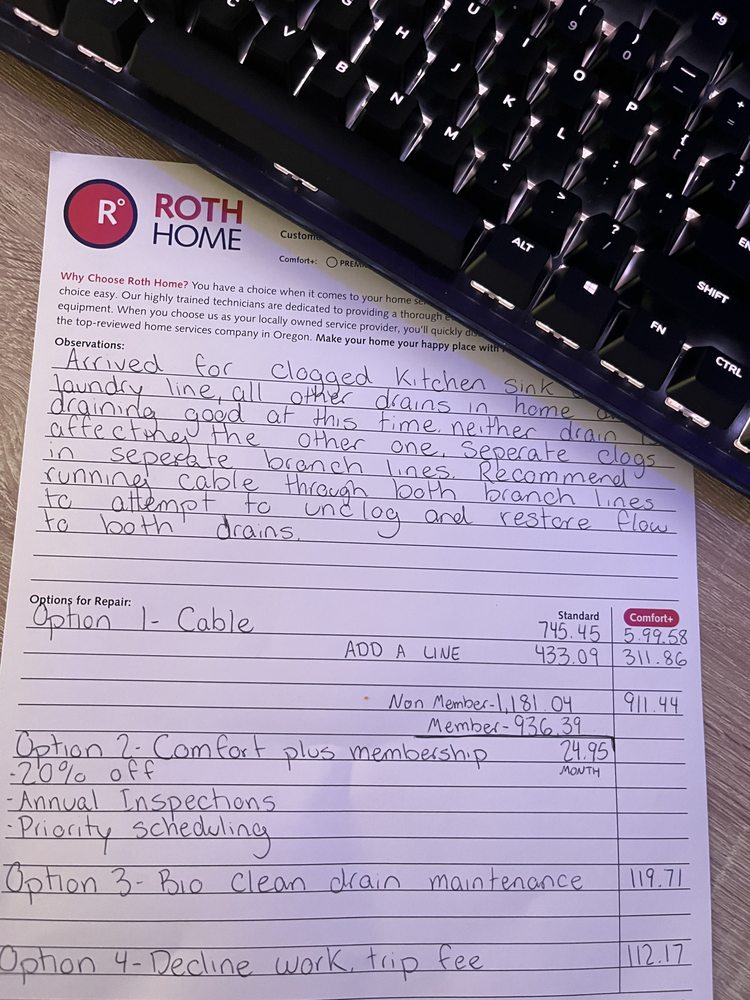 F9
U
(
9
)
0
C
V
H
I
—
_
+
=
B
J
O
N
K
P
{
[
}
]
M
L
<
,
:
;
"
>
.
?
/
ALT
SHIFT
FN
CTRL
R°
ROTH
HOME
Custome
Comfort+: PREM
Why Choose Roth Home? You have a choice when it comes to your home
choice easy. Our highly trained technicians are dedicated to providing a thorough
equipment. When you choose us as your locally owned service provider, you'll quickly
the top-reviewed home services company in Oregon. Make your home your happy place with
Observations:
Arrived for clogged Kitchen Sink
laundry line, all other drains in home
draining good at this time. neither drain
affecting the other one. Seperate clogs
in seperate branch lines. Recommend
running cable through both branch lines
to attempt to unclog and restore flow
to both drains.
Options for Repair: Standard Comfort+
Option 1- Cable 745.45 5.99.58
ADD A LINE 433.09 311.86
Non Member-1,181.04 911.44
Member-936.39
Option 2- Comfort plus membership 24.95
-20% off MONTH
-Annual Inspections
-Priority scheduling
Option 3- Bio Clean drain maintenance 119.71
Option 4-Decline work, trip fee 112.17